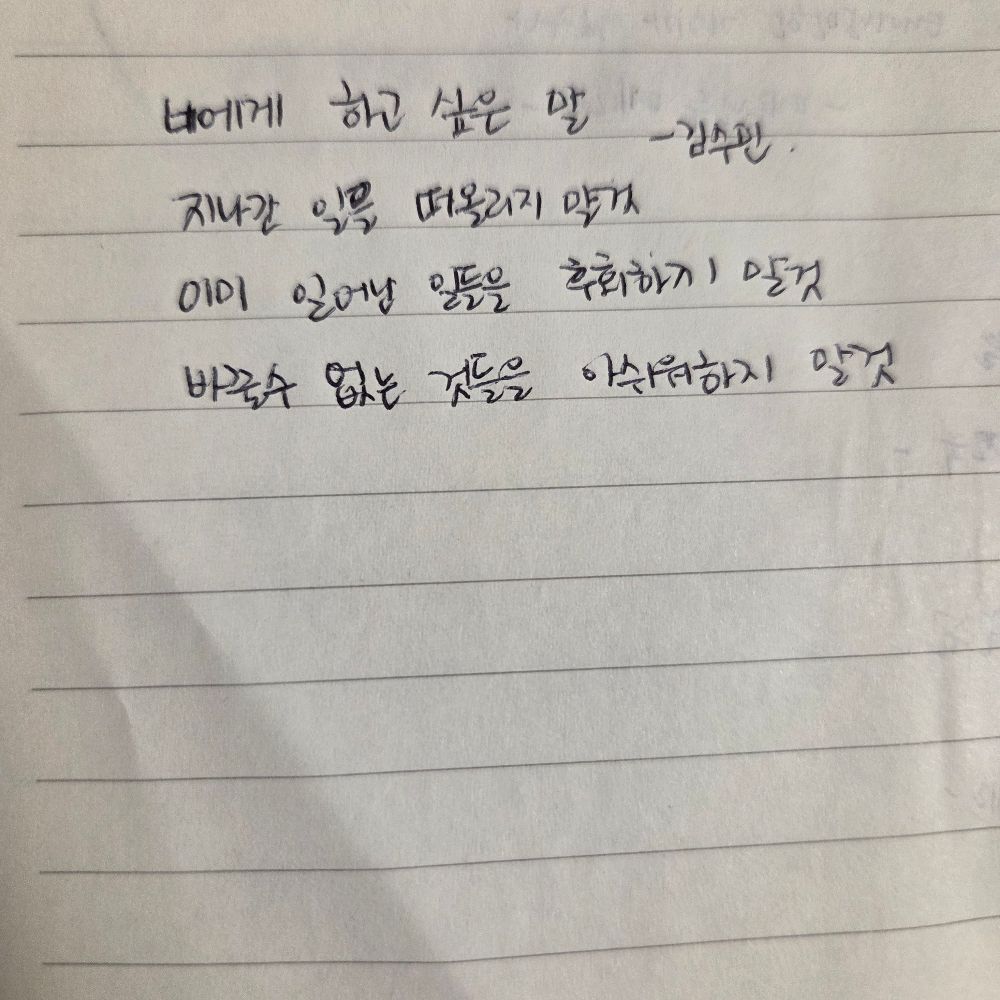 너에게 하고 싶은 말
-김수민.
지나간 일을 떠올리지 말것
이미 일어난 일들을 후회하지 말것
바꿀수 없는 것들을 아쉬워하지 말것